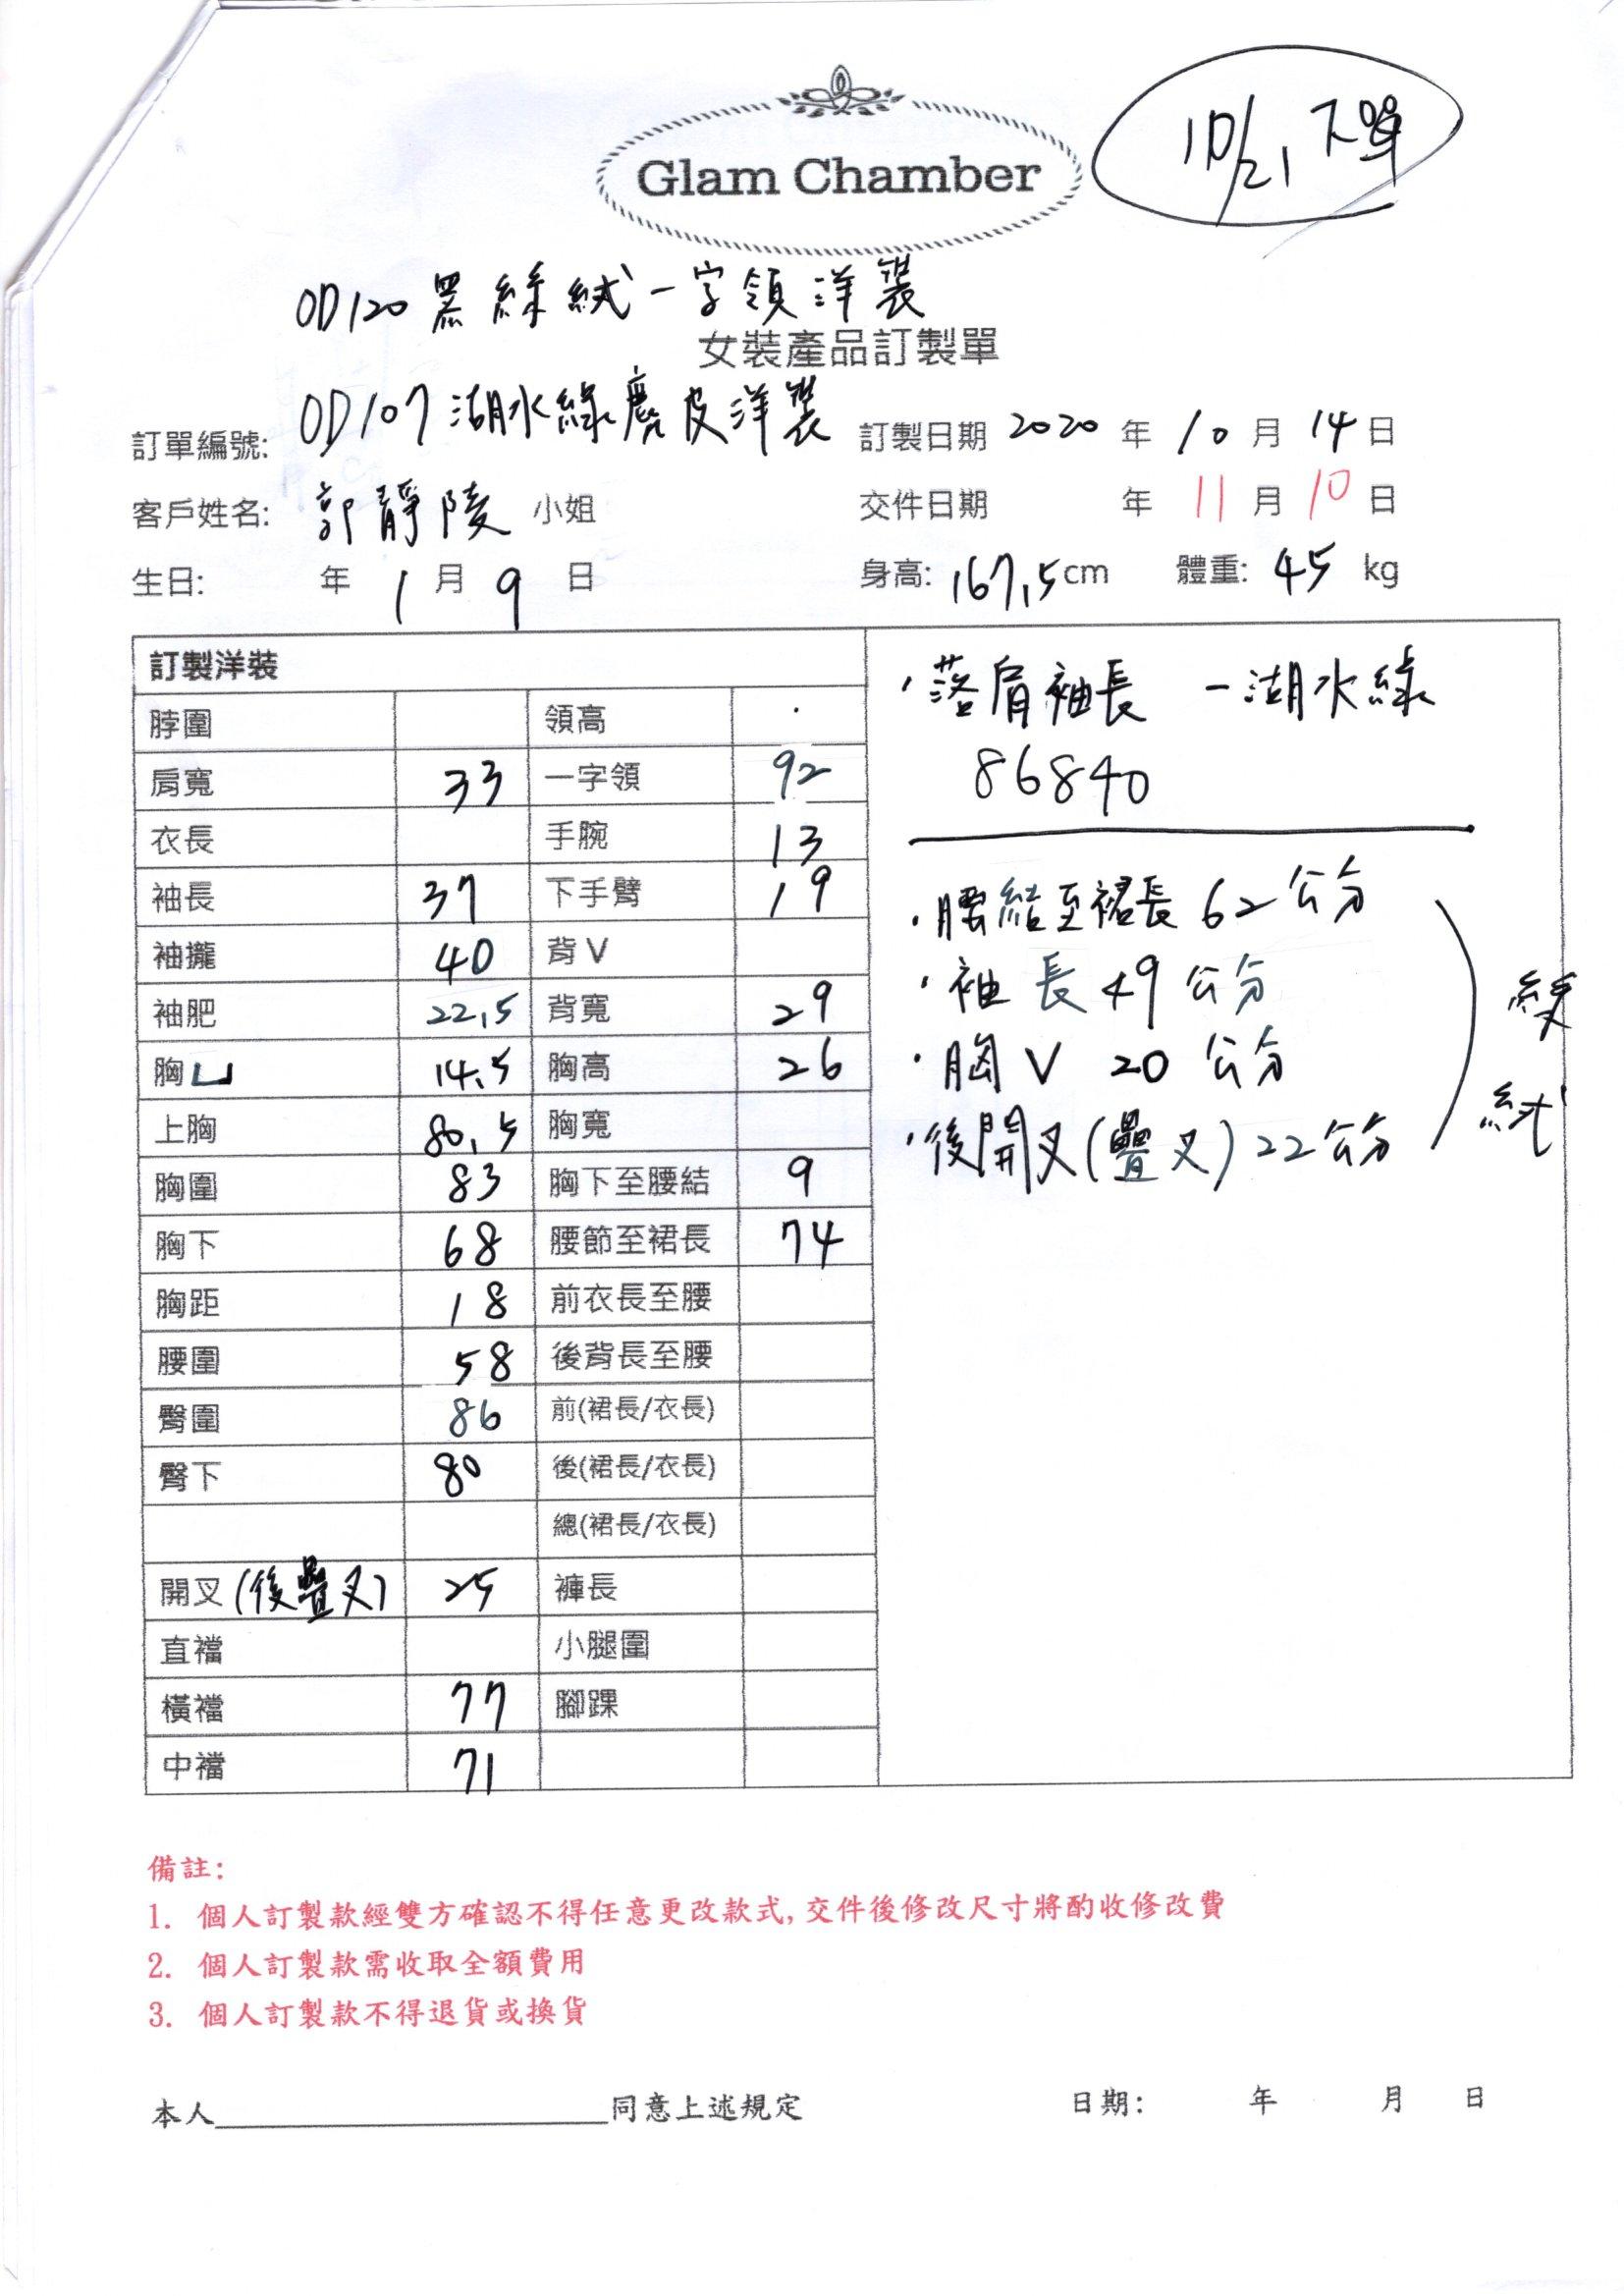 10/21 下單
Glam Chamber
OD120 黑絲絨一字領洋裝
女裝產品訂製單
訂單編號: OD107 湖水綠麂皮洋裝 訂製日期 2020 年 10 月 14 日
客戶姓名: 郭靜陵 小姐 交件日期 年 11 月 10 日
生日: 年 1 月 9 日 身高: 167.5 cm 體重: 45 kg
訂製洋裝
脖圍 領高
肩寬 33 一字領 92
衣長 手腕 13
袖長 37 下手臂 19
袖攏 40 背V
袖肥 22.5 背寬 29
胸凵 14.5 胸高 26
上胸 80.5 胸寬
胸圍 83 胸下至腰結 9
胸下 68 腰節至裙長 74
胸距 18 前衣長至腰
腰圍 58 後背長至腰
臀圍 86 前(裙長/衣長)
臀下 80 後(裙長/衣長)
總(裙長/衣長)
開叉(後疊叉) 25 褲長
直襠 小腿圍
橫襠 77 腳踝
中襠 71
·落肩袖長 - 湖水綠
86840
·腰結至裙長 62 公分
·袖長 49 公分
·胸V 20 公分
·後開叉(疊叉) 22 公分
絨
備註:
1. 個人訂製款經雙方確認不得任意更改款式,交件後修改尺寸將酌收修改費
2. 個人訂製款需收取全額費用
3. 個人訂製款不得退貨或換貨
本人____________________同意上述規定 日期: 年 月 日